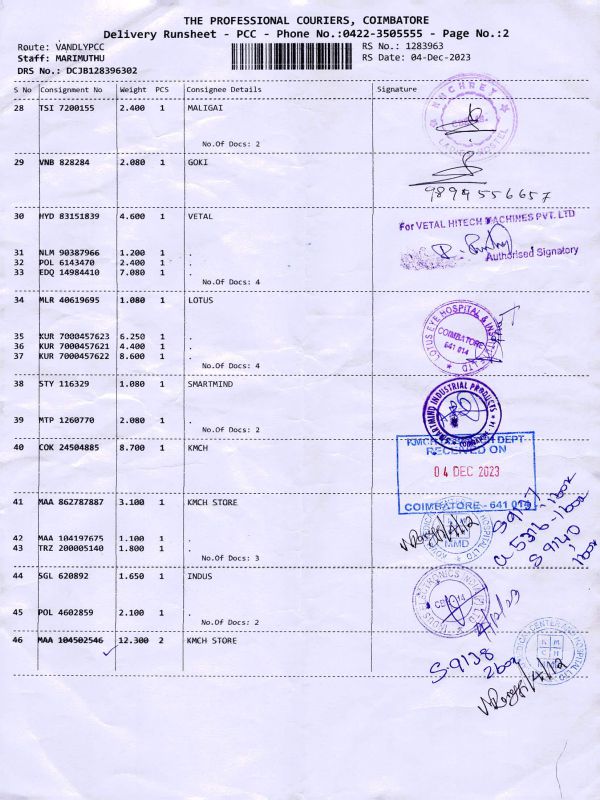 THE PROFESSIONAL COURIERS, COIMBATORE
Delivery Runsheet - PCC - Phone No.:0422-3505555 - Page No.:2
Route: VANDLYPCC RS No.: 1283963
Staff: MARIMUTHU RS Date: 04-Dec-2023
DRS No.: DCJB128396302
S No Consignment No Weight PCS Consignee Details Signature
28 TSI 7200155 2.400 1 MALIGAI
No.Of Docs: 2
29 VNB 828284 2.080 1 GOKI
9894556657
30 HYD 83151839 4.600 1 VETAL
For VETAL HITECH MACHINES PVT. LTD
Authorised Signatory
31 NLM 90387966 1.200 1 .
32 POL 6143470 2.400 1 .
33 EDQ 14984410 7.080 1 .
No.Of Docs: 4
34 MLR 40619695 1.080 1 LOTUS
LOTUS EYE HOSPITAL & INSTITUTE LTD
COIMBATORE
641 014
35 KUR 7000457623 6.250 1 .
36 KUR 7000457621 4.400 1 .
37 KUR 7000457622 8.600 1 .
No.Of Docs: 4
38 STY 116329 1.080 1 SMARTMIND
SMARTMIND INDUSTRIAL PRODUCTS
39 MTP 1260770 2.080 1 .
No.Of Docs: 2
40 COK 24504885 8.700 1 KMCH
DEPT
RECEIVED ON
04 DEC 2023
COIMBATORE - 641 014
41 MAA 862787887 3.100 1 KMCH STORE
S 9137 - 1box
5316 - 1box
S 9140
1box
42 MAA 104197675 1.100 1 .
43 TRZ 200005140 1.800 1 .
No.Of Docs: 3
44 SGL 620892 1.650 1 INDUS
45 POL 4602859 2.100 1 .
No.Of Docs: 2
4/12/23
46 MAA 104502546 12.300 2 KMCH STORE
S-9138
2box
4/12